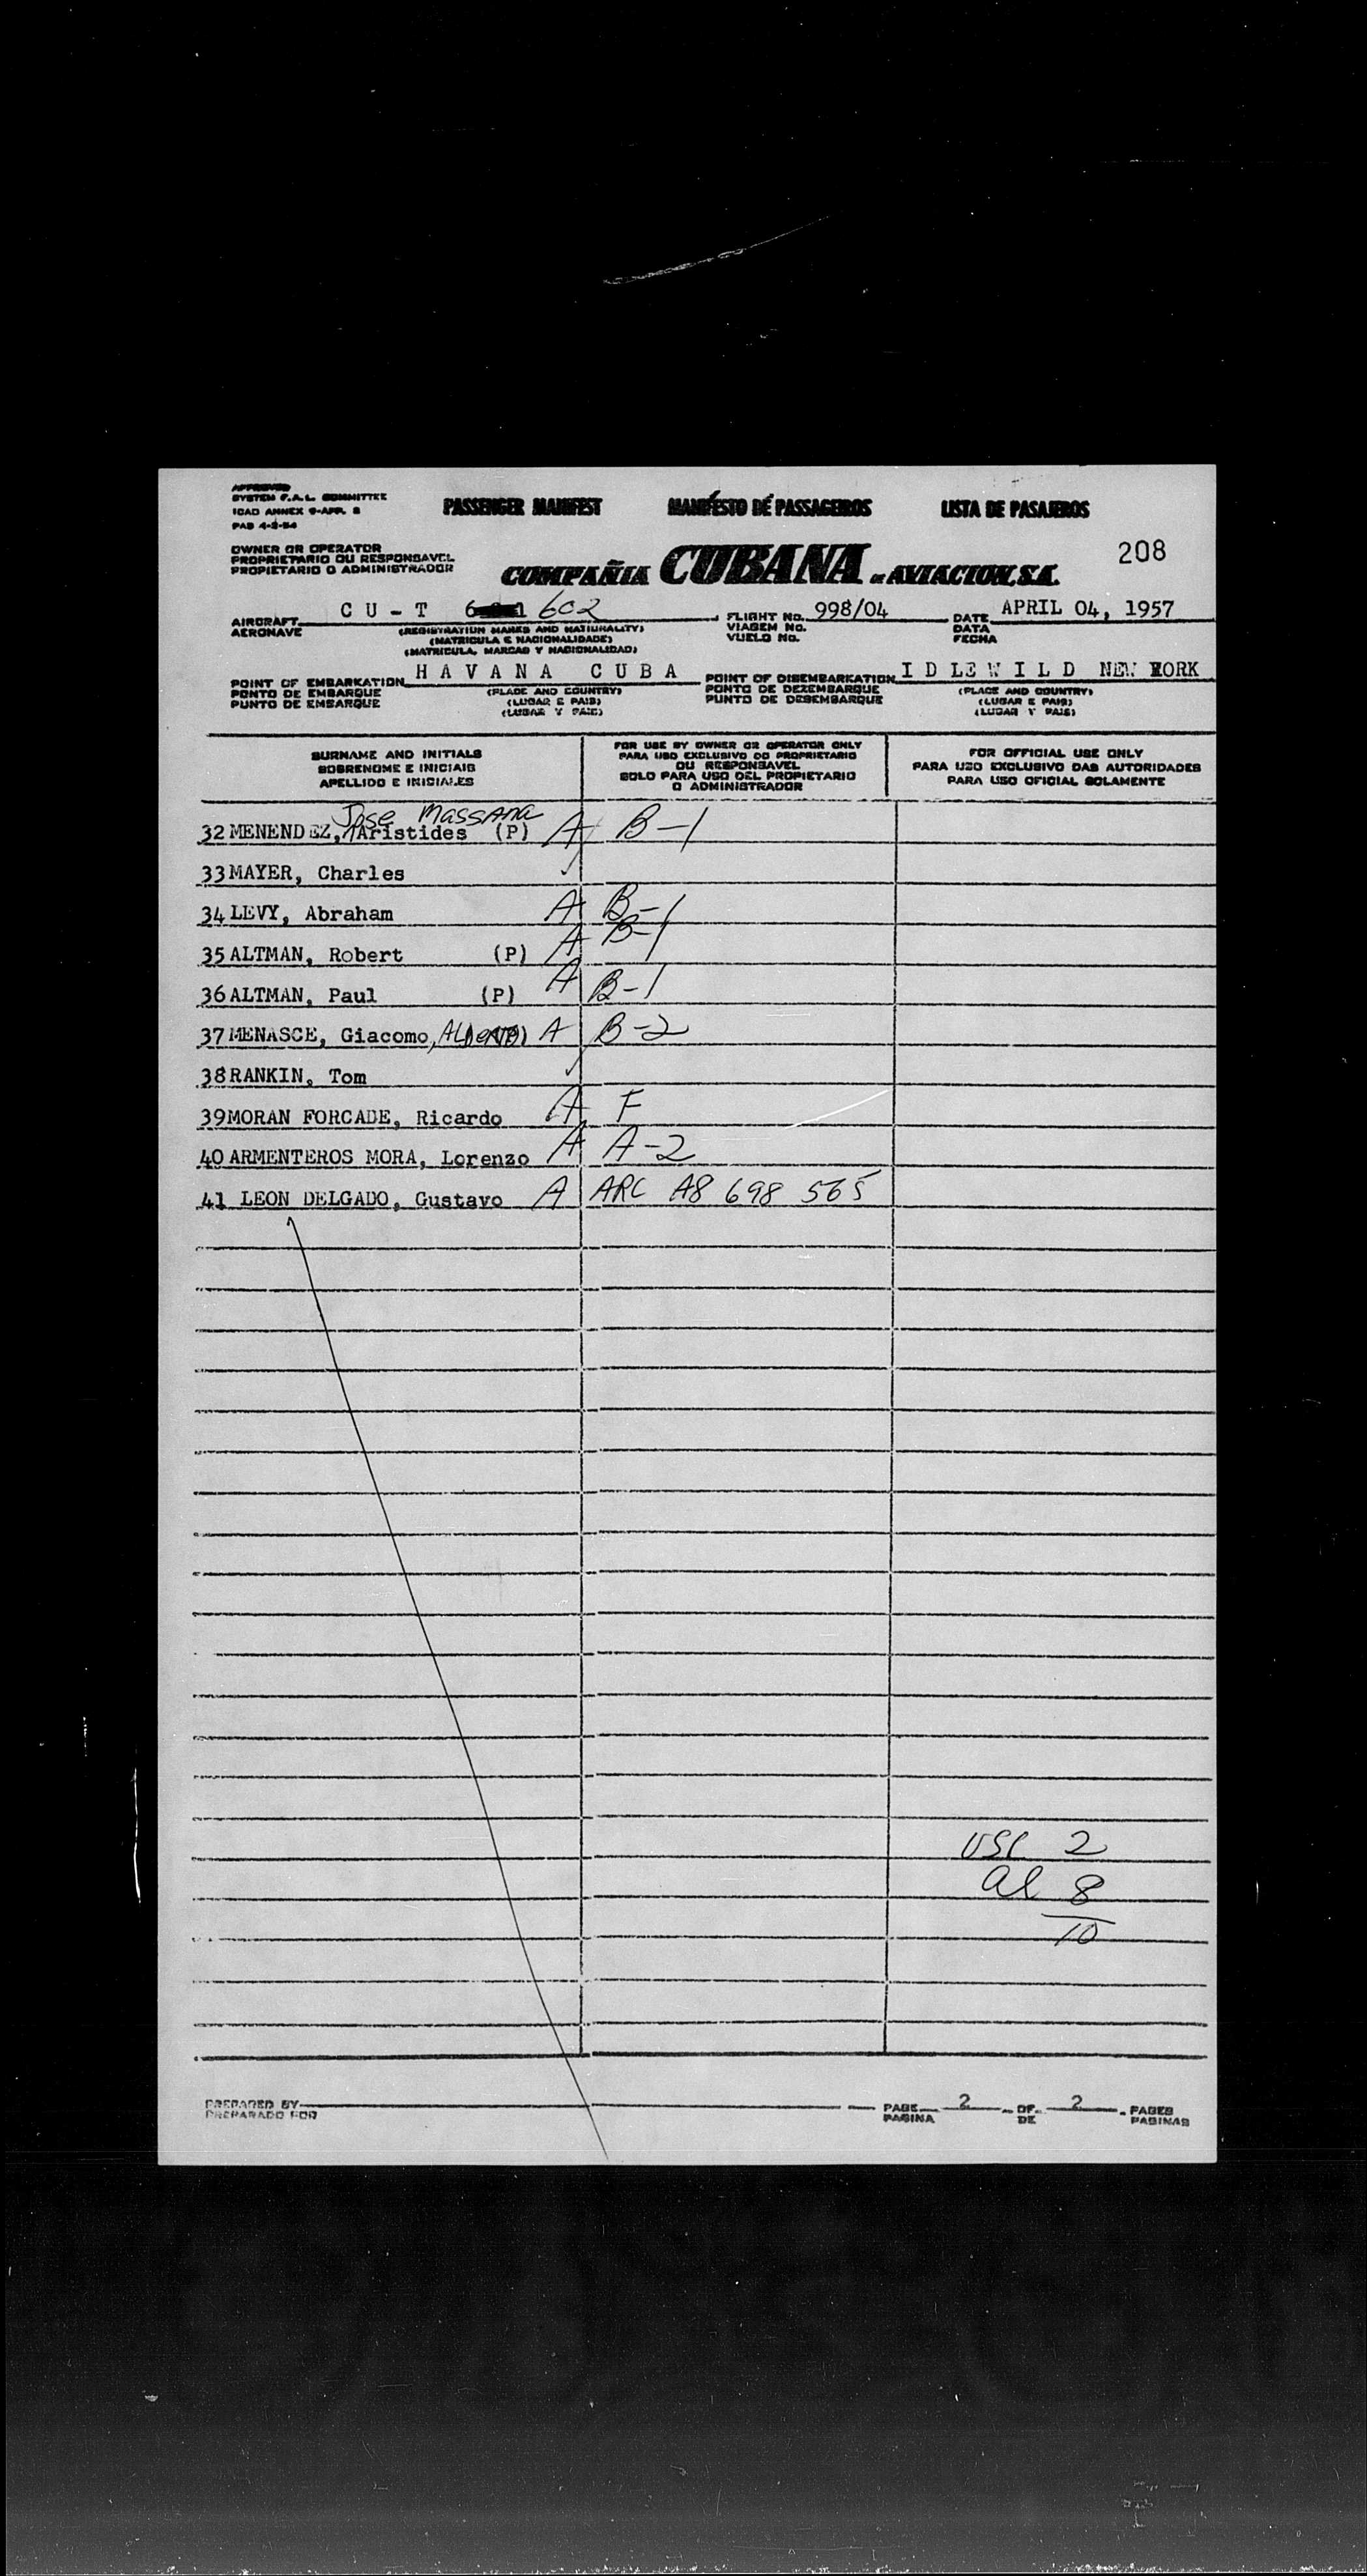 APPROVED
SYSTEM F.A.L. COMMITTEE
ICAO ANNEX 9-APP. 8
PAB 4-2-54
PASSENGER MANIFEST MANIFESTO DE PASSAGEIROS LISTA DE PASAJEROS
OWNER OR OPERATOR
PROPRIETARIO OU RESPONSAVEL
PROPIETARIO O ADMINISTRADOR
COMPAÑIA CUBANA DE AVIACION, S.A.
208
AIRCRAFT CU-T 602 FLIGHT No. 998/04 DATE APRIL 04, 1957
AERONAVE VIAGEM No. DATA
VUELO No. FECHA
(REGISTRATION MARKS AND NATIONALITY)
(MATRICULA E NACIONALIDADE)
(MATRICULA, MARCAS Y NACIONALIDAD)
POINT OF EMBARKATION HAVANA CUBA POINT OF DISEMBARKATION IDLEWILD NEW YORK
PONTO DE EMBARQUE (PLACE AND COUNTRY) PONTO DE DEZEMBARQUE (PLACE AND COUNTRY)
PUNTO DE EMBARQUE (LUGAR E PAIS) PUNTO DE DESEMBARQUE (LUGAR E PAIS)
(LUGAR Y PAIS) (LUGAR Y PAIS)
SURNAME AND INITIALS
SOBRENOME E INICIAIS
APELLIDO E INICIALES
FOR USE BY OWNER OR OPERATOR ONLY
PARA USO EXCLUSIVO DO PROPRIETARIO
OU RESPONSAVEL
SOLO PARA USO DEL PROPIETARIO
O ADMINISTRADOR
FOR OFFICIAL USE ONLY
PARA UZO EXCLUSIVO DAS AUTORIDADES
PARA USO OFICIAL SOLAMENTE
Jose Massana
32 MENENDEZ, Aristides (P) A B-1
33 MAYER, Charles ✓
34 LEVY, Abraham A B-1
35 ALTMAN, Robert (P) A B-1
36 ALTMAN, Paul (P) A B-1
37 MENASCE, Giacomo, A B-2
38 RANKIN, Tom ✓
39 MORAN FORCADE, Ricardo A F
40 ARMENTEROS MORA, Lorenzo A A-2
41 LEON DELGADO, Gustavo A ARC A8 698 565
USC 2
al 8
10
PREPARED BY
PREPARADO POR
PAGE 2 OF 2 PAGES
PAGINA DE PAGINAS